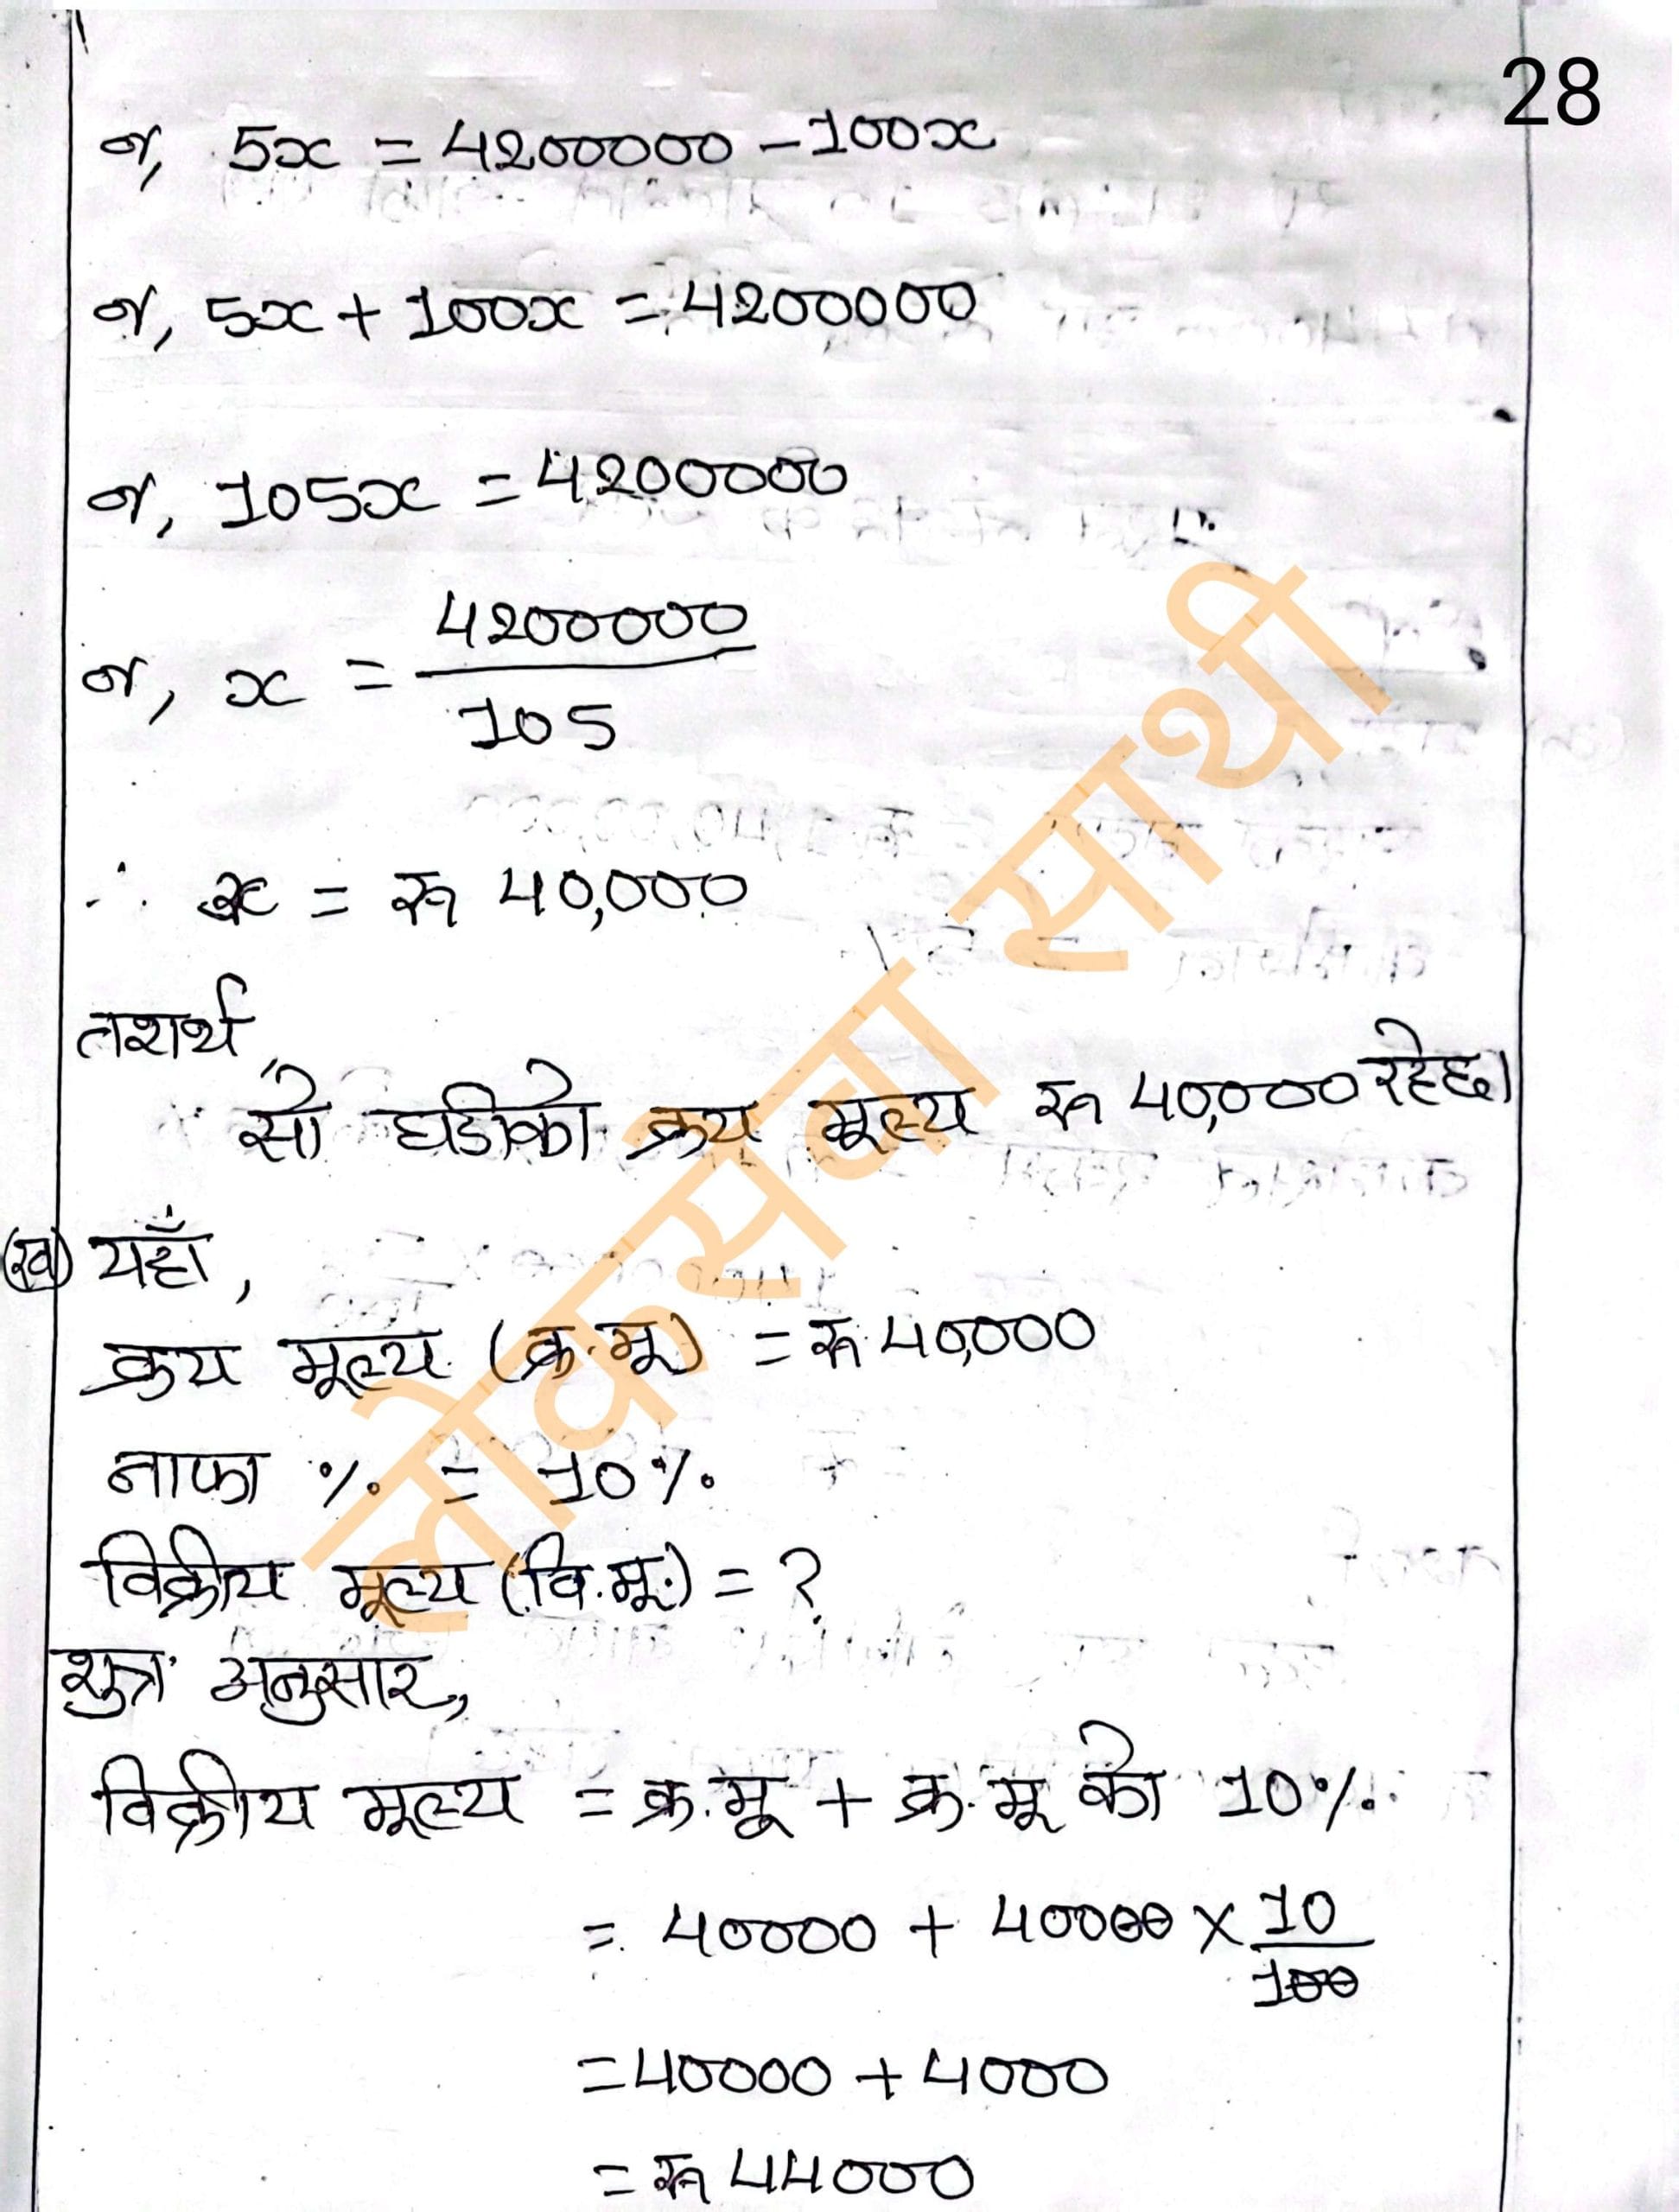 28
or, 5x = 4200000 - 100x
or, 5x + 100x = 4200000
or, 105x = 4200000
or, x = 4200000/105
∴ x = रू 40,000
तशर्थ,
सो घडीको क्रय मूल्य रू 40,000 रहेछ।
(ख) यहाँ,
क्रय मूल्य (क्र.मू) = रू 40,000
नाफा % = 10%
विक्रीय मूल्य (वि.मू.) = ?
शुत्र अनुसार,
विक्रीय मूल्य = क्र.मू + क्र.मू को 10%
= 40000 + 40000 × 10/100
= 40000 + 4000
= रू 44000
लोकसेवा साथी